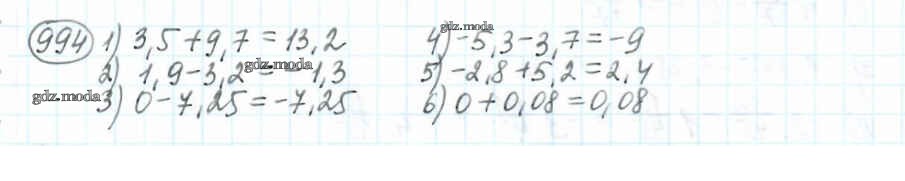 994 1) 3,5+9,7=13,2
2) 1,9-3,2=-1,3
3) 0-7,25=-7,25
4) -5,3-3,7=-9
5) -2,8+5,2=2,4
6) 0+0,08=0,08
gdz.moda
gdz.moda
gdz.moda